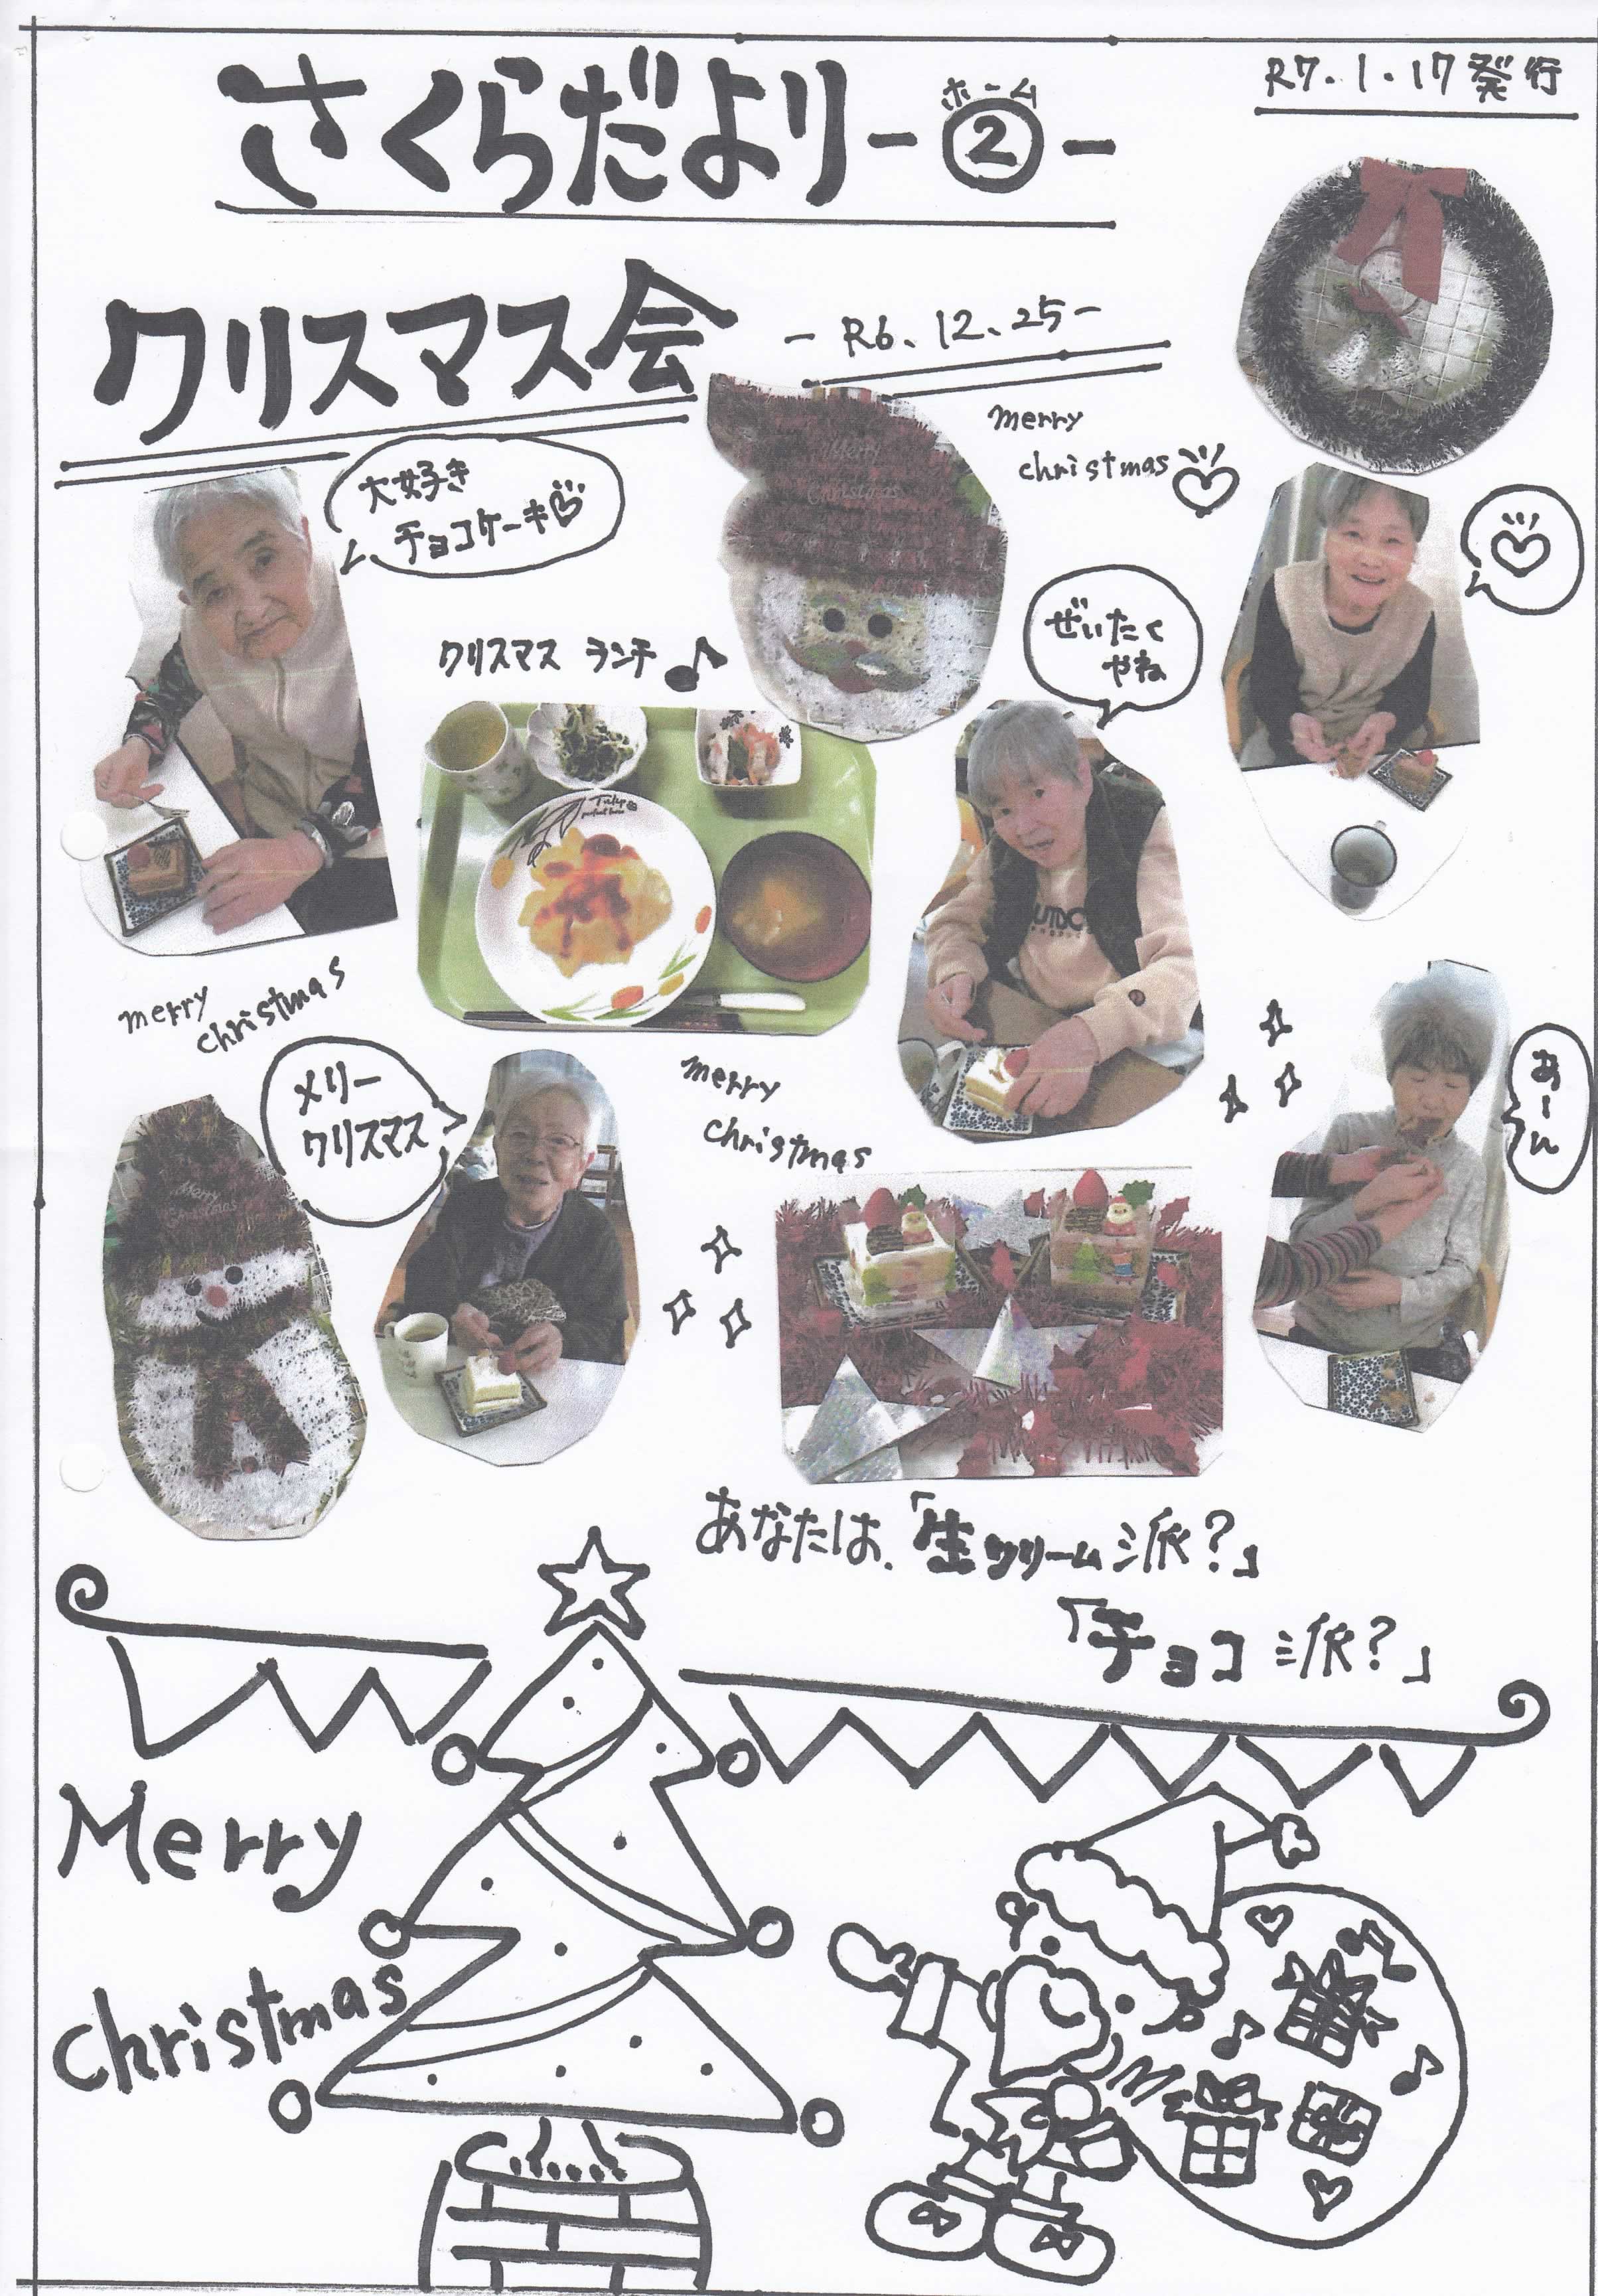 R7.1.17発行
さくらだより-②-
ホーム
クリスマス会
-R6.12.25-
merry
christmas
大好き
チョコケーキ
Merry
Christmas
ぜいたく
やね
クリスマス ランチ
Tulip
OUTDO
merry
christmas
メリー
クリスマス
merry
christmas
あーん
Merry
Christmas
あなたは、「生クリーム派?」
「チョコ派?」
Merry
christmas